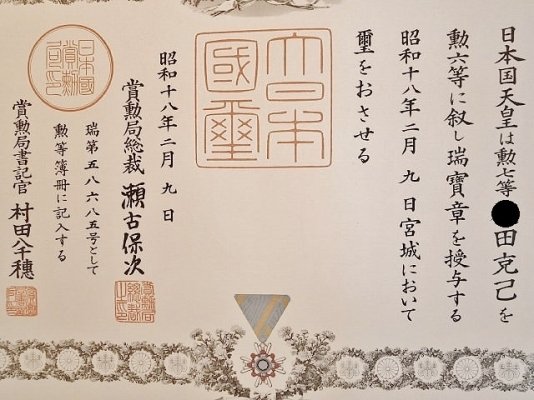 日本国天皇は勲七等 田克己を
勲六等に叙し瑞寶章を授与する
昭和十八年二月 九 日宮城において
璽をおさせる
大日本國璽
昭和十八年二月 九 日
賞勲局総裁 瀬古保次
瑞第五八六八五号として
勲等簿冊に記入する
賞勲局書記官 村田八千穂